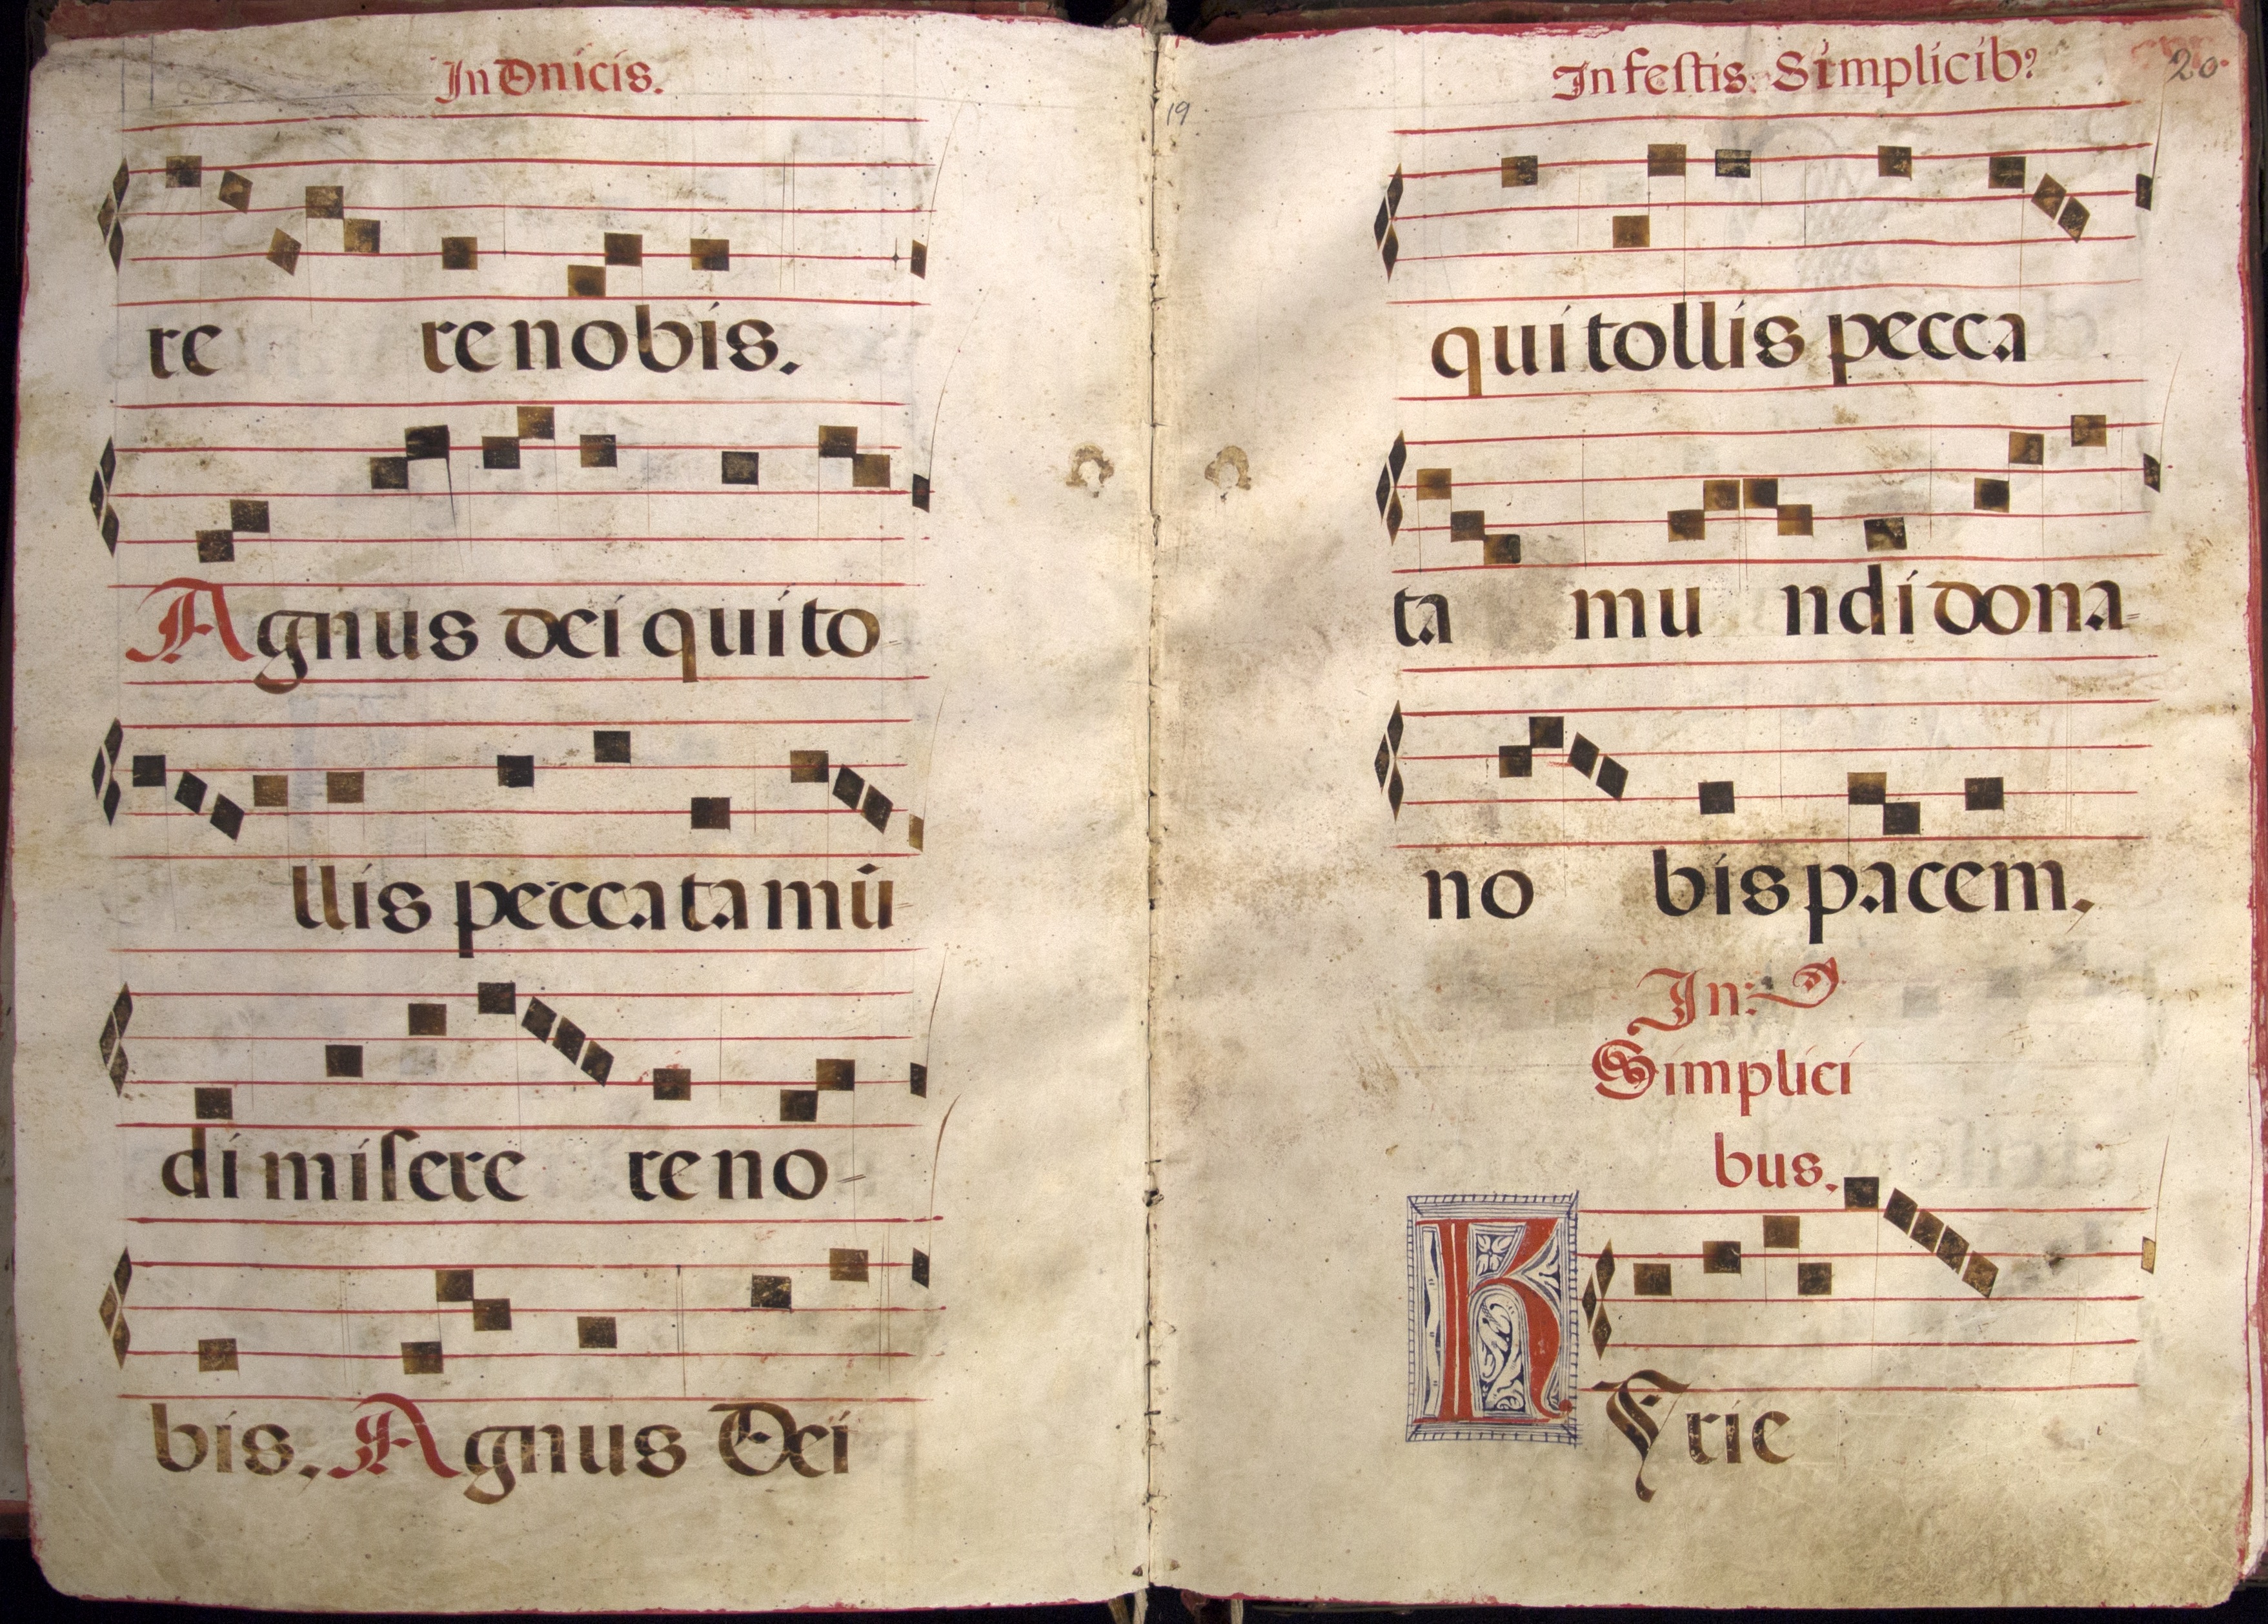 In Dnicis.
re re nobis.
Agnus dei qui to-
llis peccata mū-
di miſere re no-
bis. Agnus Dei
19
In feſtis. Simplicib⁹
20.
qui tollis pecca
ta mu ndi dona-
no bis pacem.
In:
Simplici
bus.
KYrie